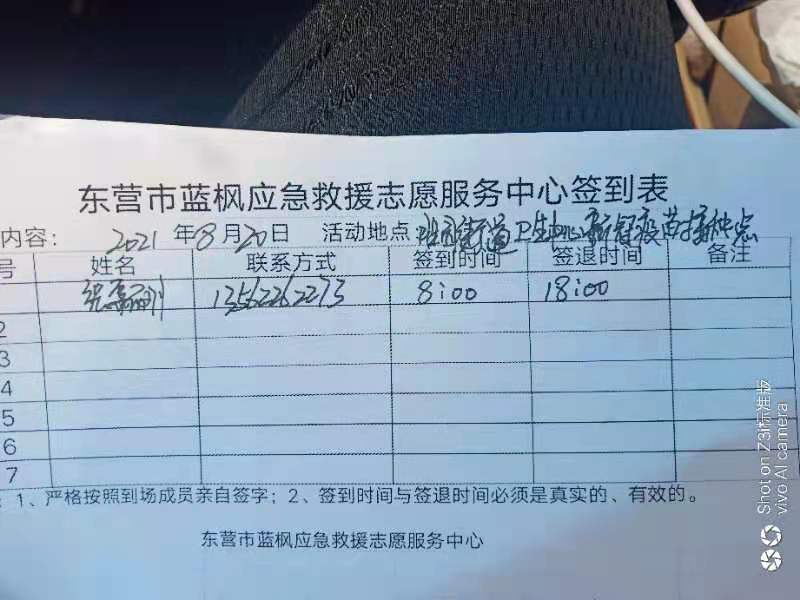 东营市蓝枫应急救援志愿服务中心签到表
内容: 2021年8月20日 活动地点: 街道卫生中心新智疫苗接种点
号 姓名 联系方式 签到时间 签退时间 备注
13562262273 8:00 18:00
2
3
4
5
6
7
: 1、严格按照到场成员亲自签字; 2、签到时间与签退时间必须是真实的、有效的。
东营市蓝枫应急救援志愿服务中心
Shot on Z3i标准版
vivo AI camera